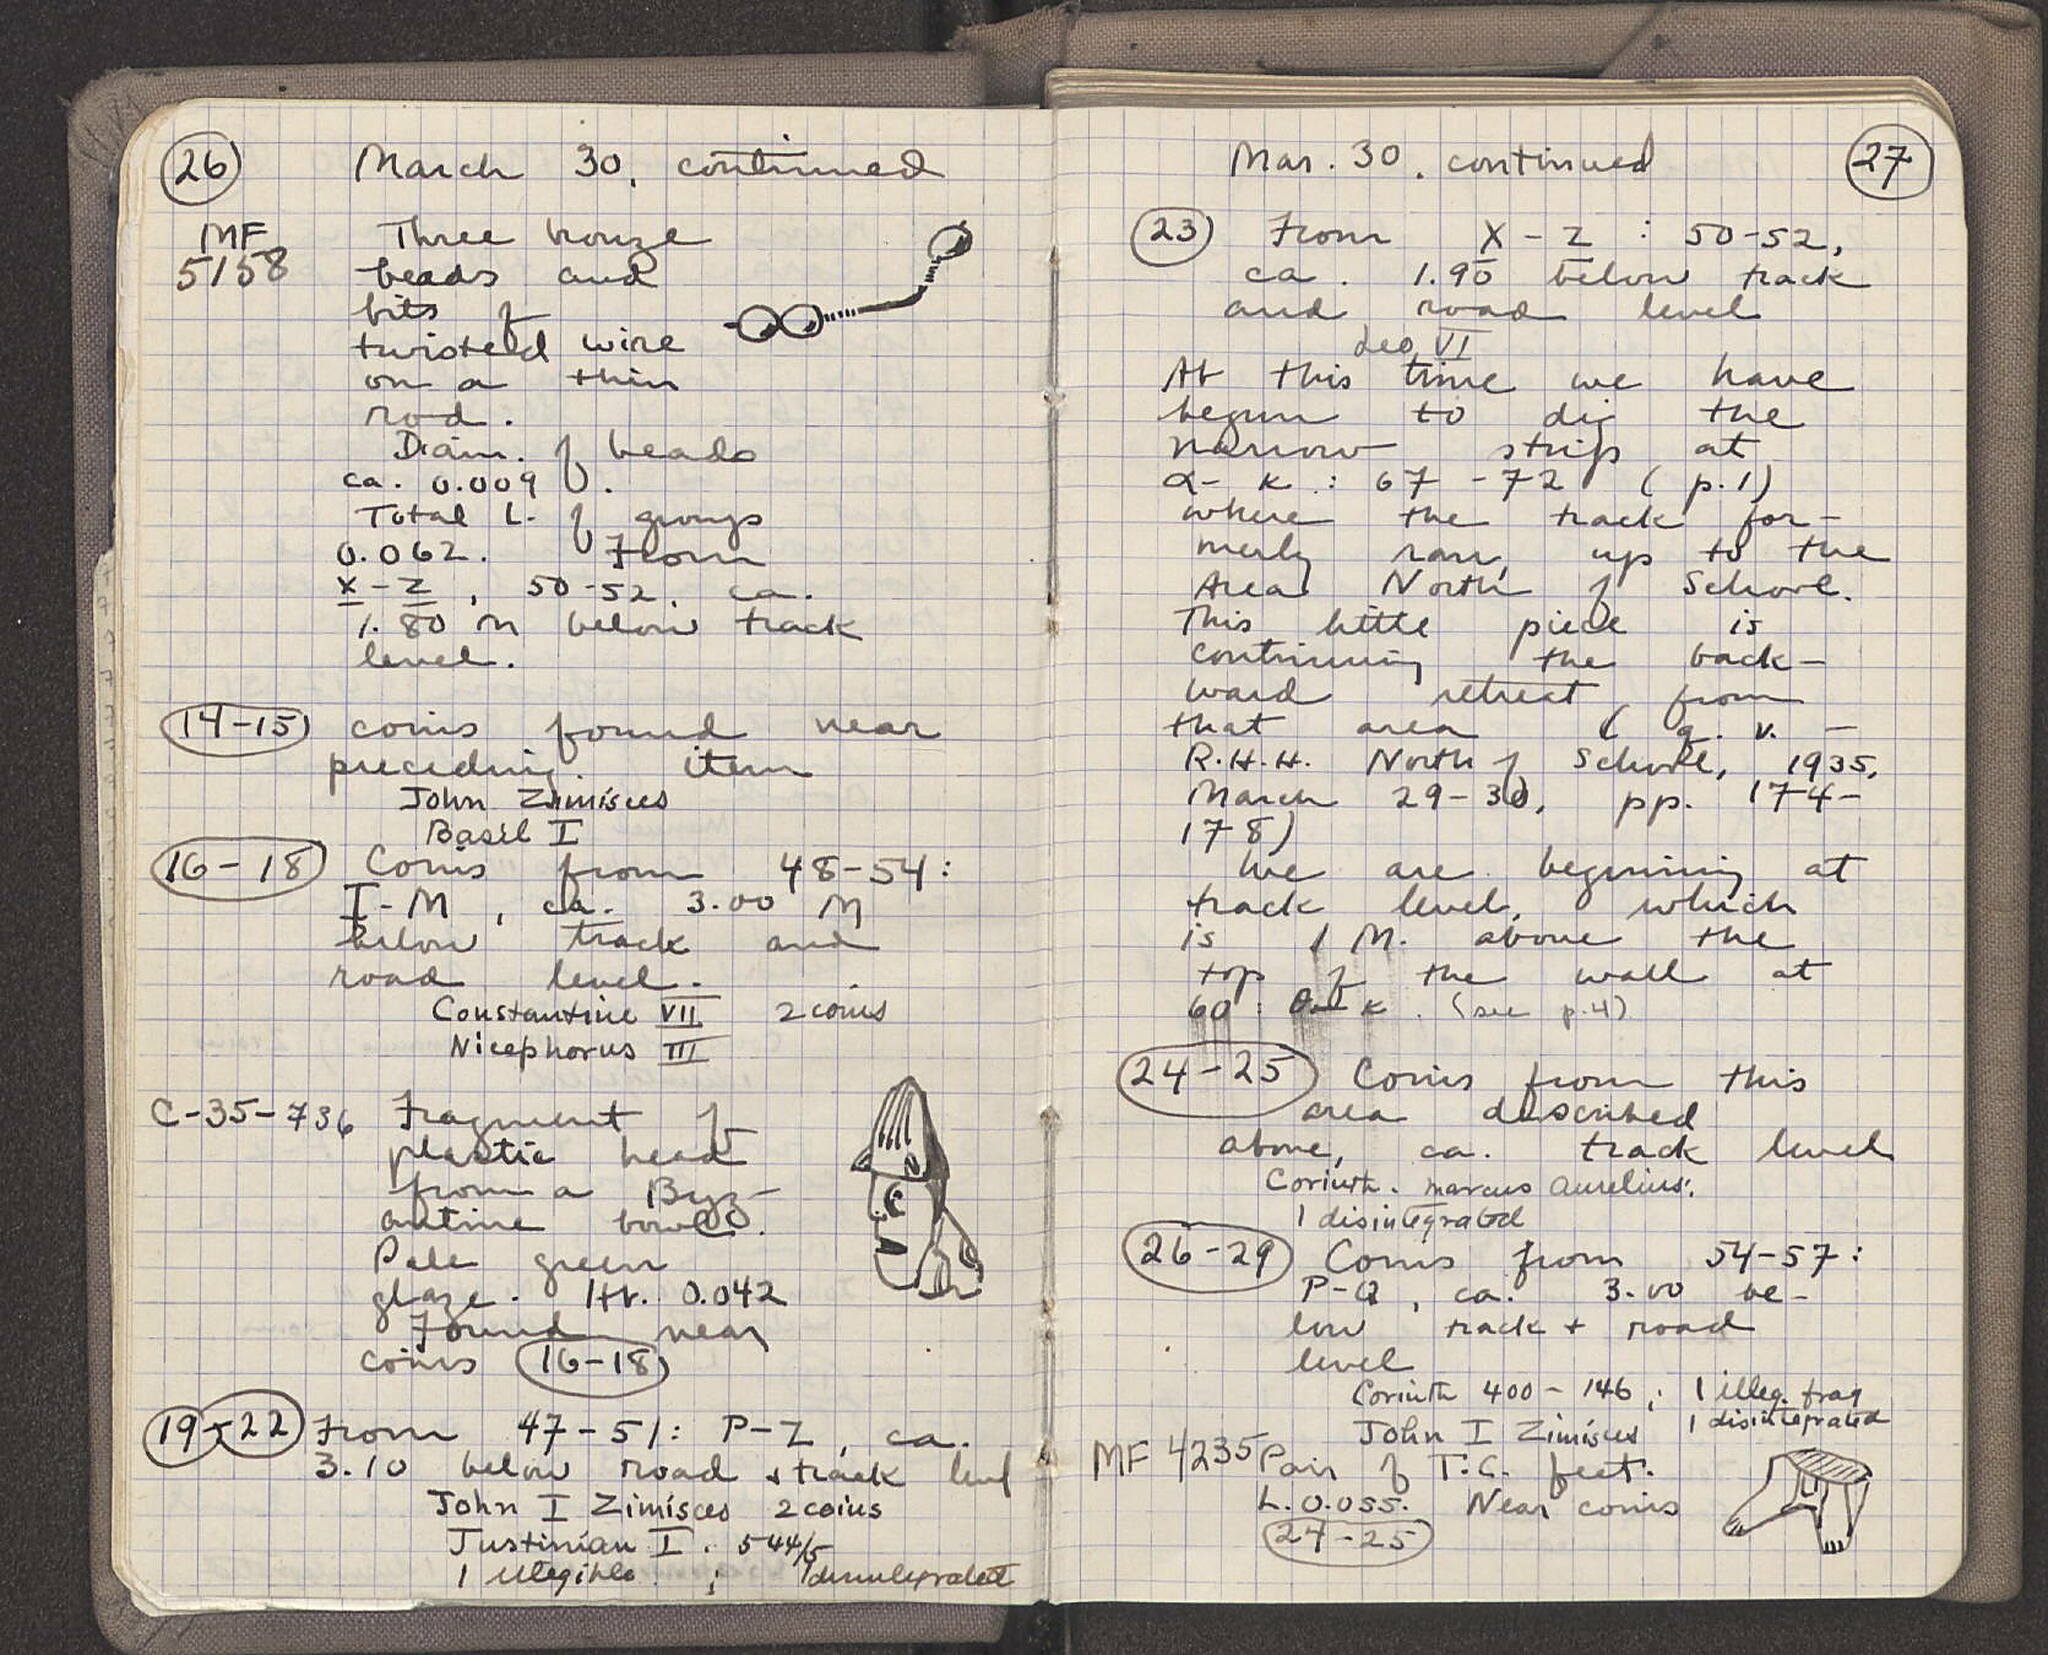 26
March 30, continued
MF
5158
Three bronze
beads and
bits of
twisted wire
on a thin
rod.
Diam. of beads
ca. 0.009.
Total L. of groups
0.062. From
X-Z, 50-52, ca.
1.80 M below track
level.
14-15 coins found near
preceding item
John Zimisces
Basil I
16-18 Coins from 48-54:
I-M, ca. 3.00 M
below track and
road level.
Constantine VII 2 coins
Nicephorus III
C-35-736 Fragment of
plastic head
from a Byz-
antine bowl.
Pale green
glaze. Ht. 0.042
Found near
coins 16-18
19-22 From 47-51: P-Z, ca.
3.10 below road + track level
John I Zimisces 2 coins
Justinian I. 544/5
1 illegible ; 1 disintegrated
Mar. 30, continued
27
23 From X-Z: 50-52,
ca. 1.90 below track
and road level
Leo VI
At this time we have
begun to dig the
narrow strip at
α- K: 67-72 (p.1)
where the track for-
merly ran, up to the
Area North of School.
This little piece is
continuing the back-
ward retreat from
that area (q.v. -
R.H.H. North of School, 1935,
March 29-30, pp. 174-
178)
We are beginning at
track level, which
is 1 M. above the
top of the wall at
60: K. (see p.4)
24-25 Coins from this
area described
above, ca. track level
Corinth. Marcus Aurelius.
1 disintegrated
26-29 Coins from 54-57:
P-Q, ca. 3.00 be-
low track + road
level
Corinth 400-146; 1 illeg. frag
John I Zimisces 1 disintegrated
MF 4235 Pair of T.C. feet.
L. 0.055. Near coins
24-25